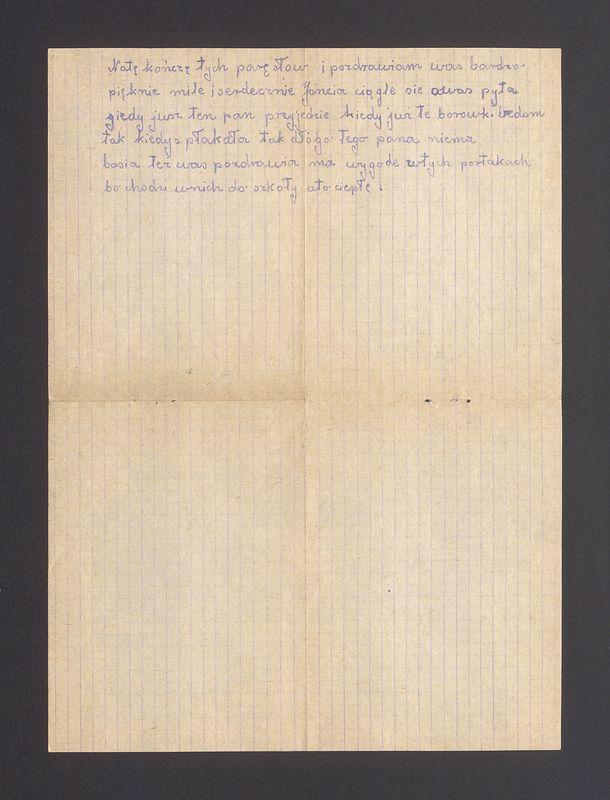 Natę kończę tych parę słow i pozdrawiam was bardzo
pięknie mile i serdecznie Joncia ciągle sie owas pyta
giedy jusz ten pan przyjedzie kiedy już te borowk. bedom
tak kiedys płakała tak dłógo tego pana niema
basia też was pozdrawia ma wygode wtych portakach
bo chodzi wnich do szkoły ato ciepłe!